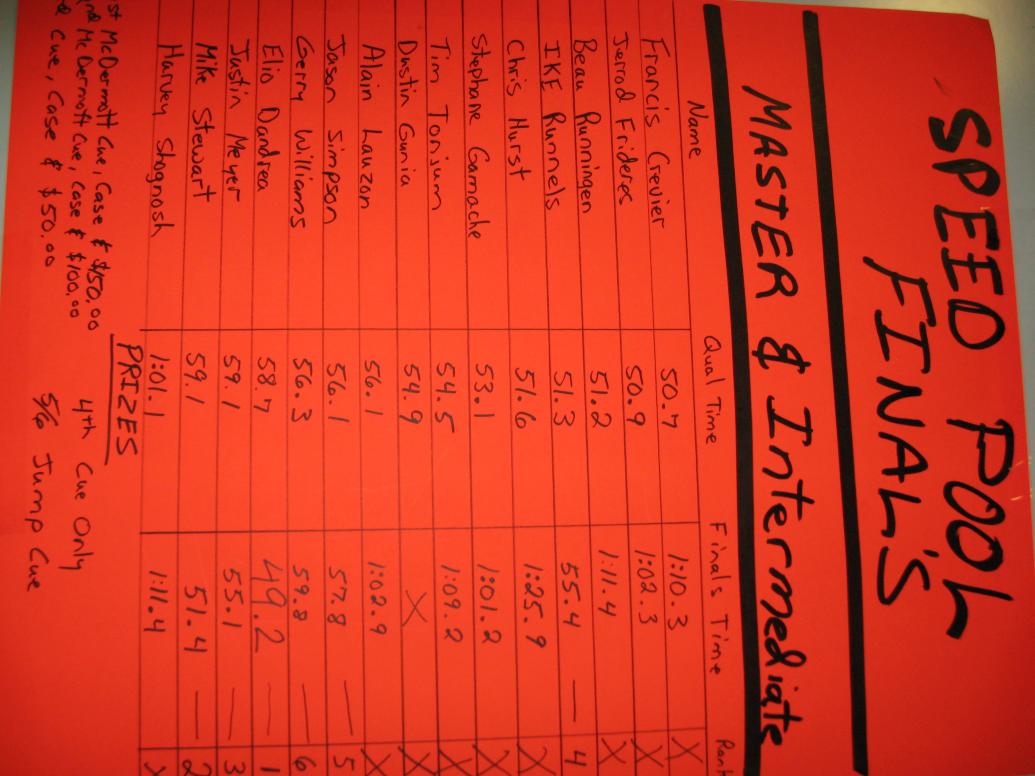 SPEED POOL
FINAL'S
MASTER & Intermediate
Name Qual Time Finals Time Rank
Francis Crevier 50.7 1:10.3 X
Jerrod Frideres 50.9 1:02.3 X
Beau Runningen 51.2 1:11.4 X
IKE Runnels 51.3 55.4 — 4
Chris Hurst 51.6 1:25.9 X
Stephane Gamache 53.1 1:01.2 X
Tim Tonjum 54.5 1:09.2 X
Dustin Gunia 54.9 X X
Alain Lauzon 56.1 1:02.9 X
Jason Simpson 56.1 57.8 — 5
Gerry Williams 56.3 59.8 — 6
Elio Dandrea 58.7 49.2 — 1
Justin Meyer 59.1 55.1 — 3
Mike Stewart 59.1 51.4 — 2
Harvey Shognosh 1:01.1 1:11.4 X
PRIZES
1st McDermott Cue, Case & $150.00 4th Cue Only
2nd McDermott Cue, Case & $100.00 5/6 Jump Cue
Cue, Case & $50.00